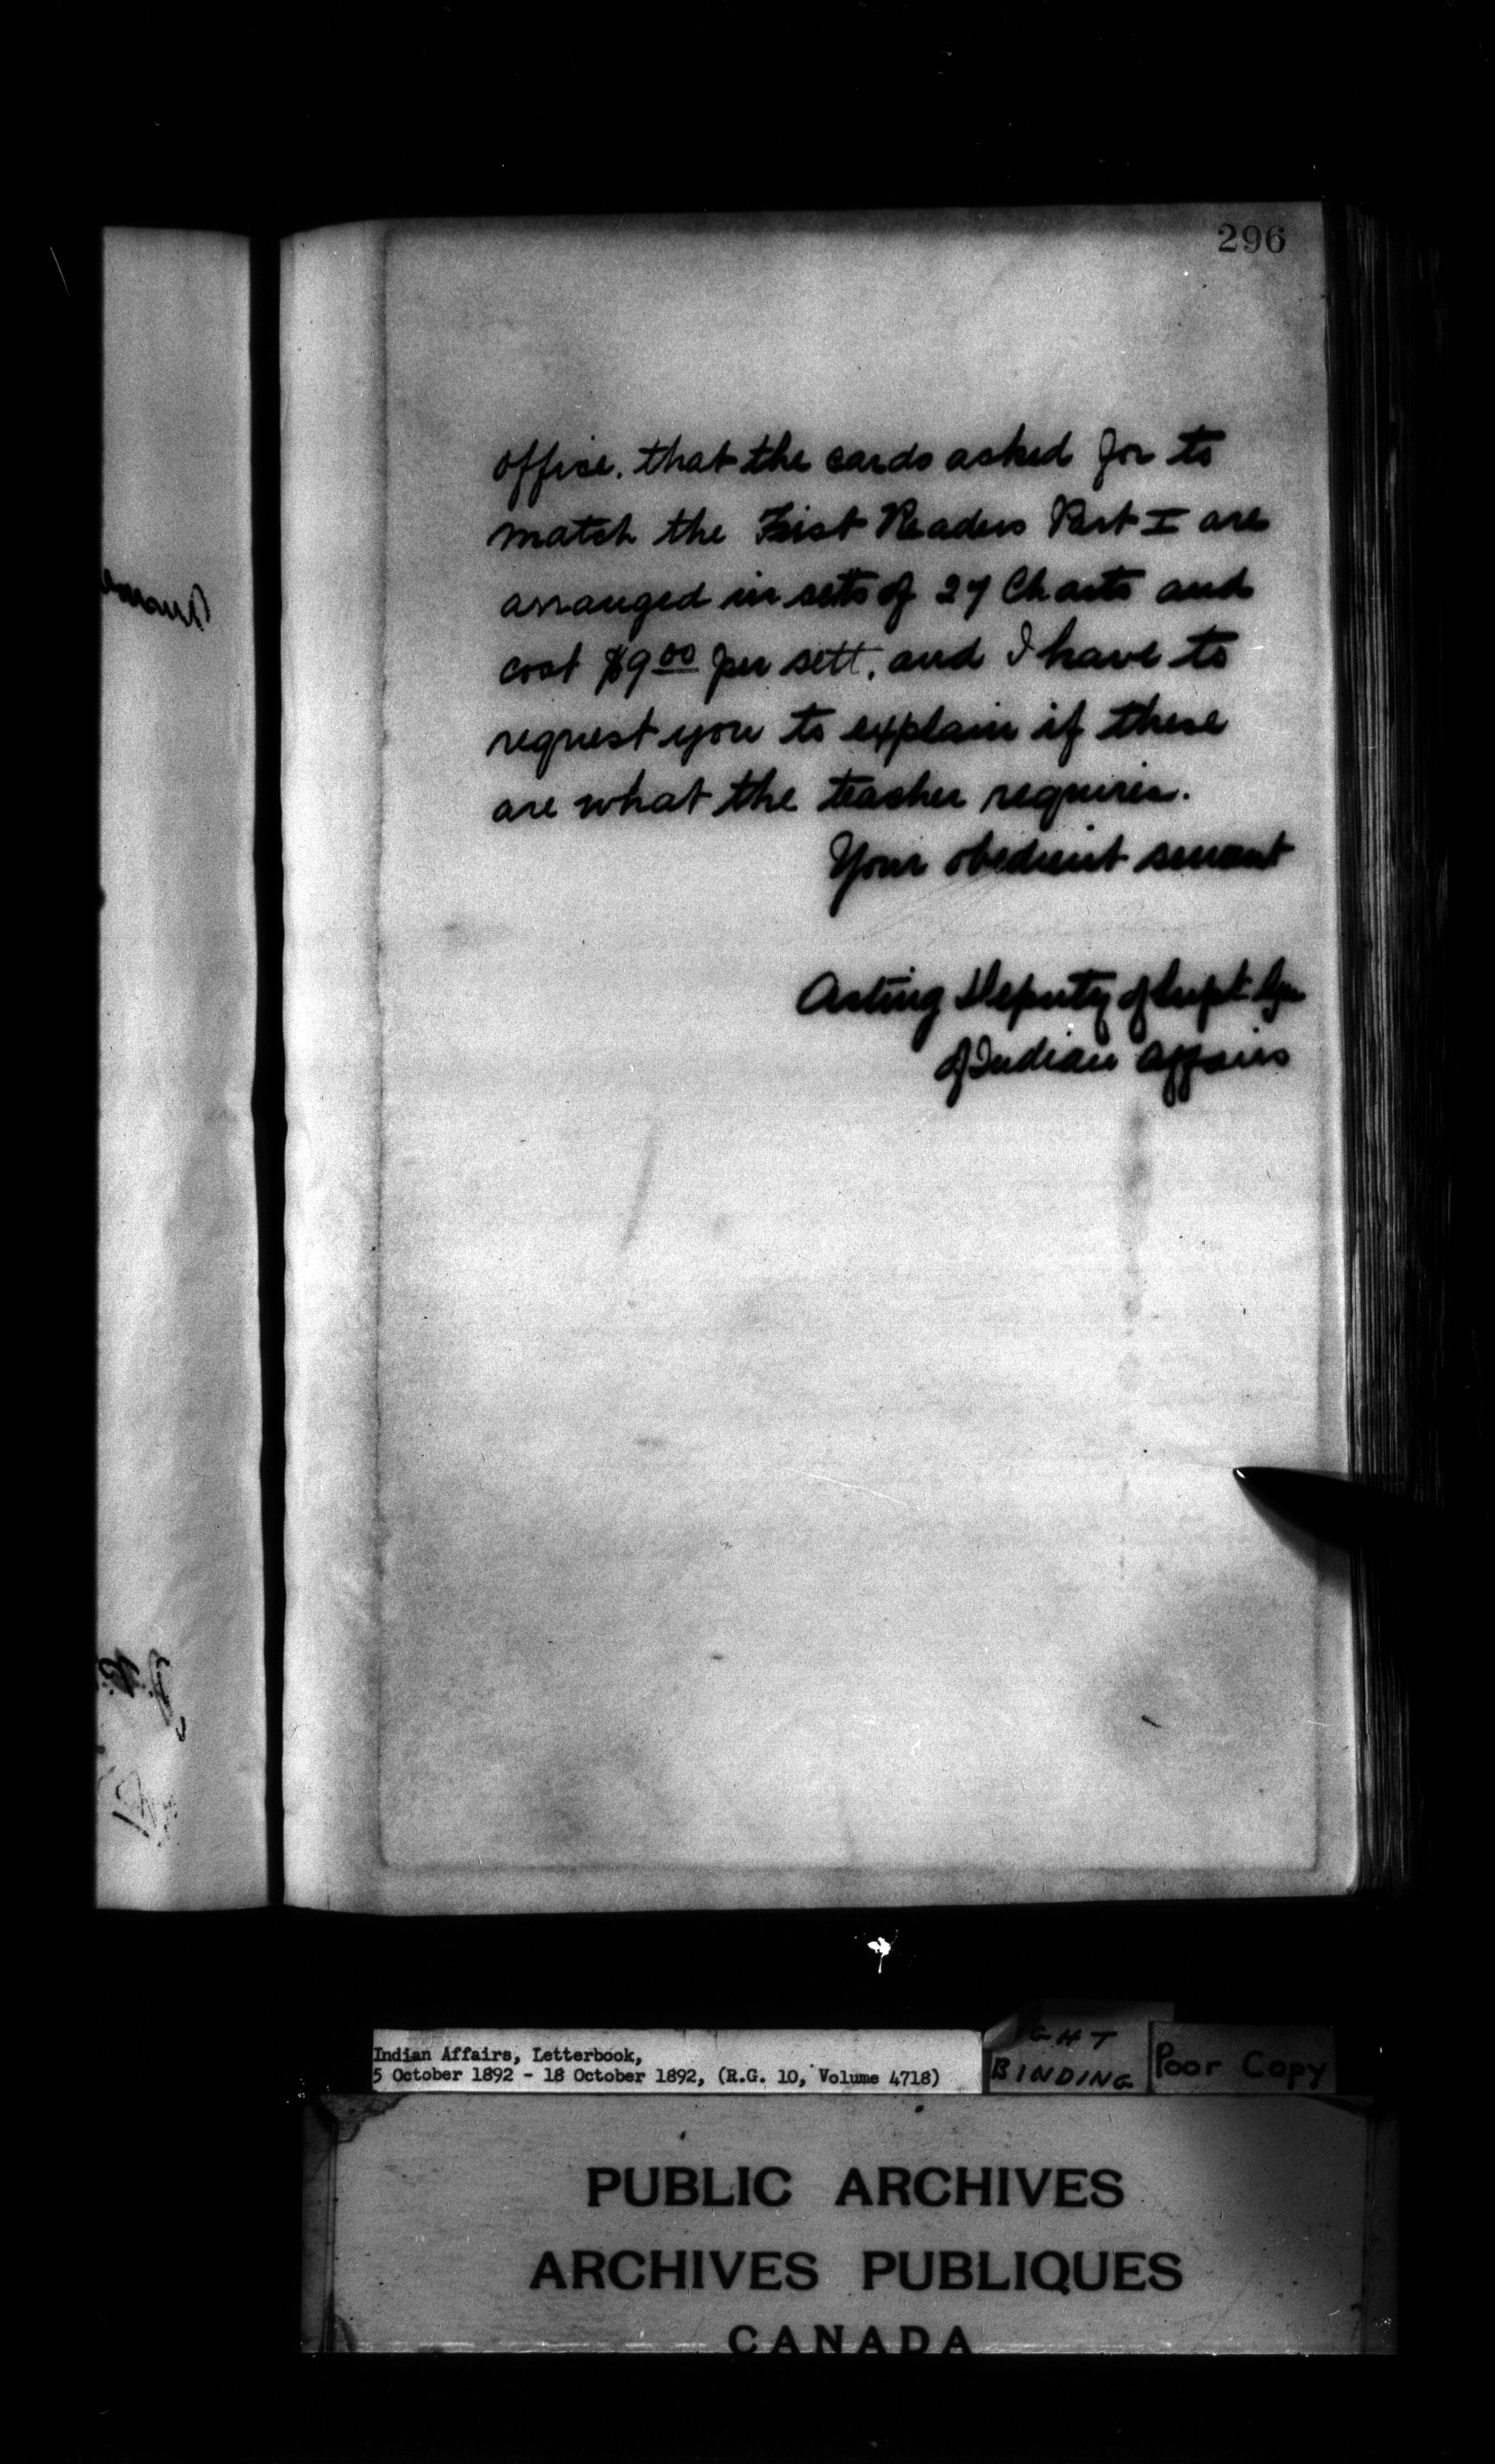 296
office, that the cards asked for to
match the First Readers Part I are
arranged in setts of 27 Charts and
cost $9.00 per sett, and I have to
request you to explain if these
are what the teacher requires.
Your obedient servant
Acting Deputy of Supt Gen
of Indian Affairs
Indian Affairs, Letterbook,
5 October 1892 - 18 October 1892, (R.G. 10, Volume 4718)
GHT
BINDING
Poor Copy
PUBLIC ARCHIVES
ARCHIVES PUBLIQUES
CANADA